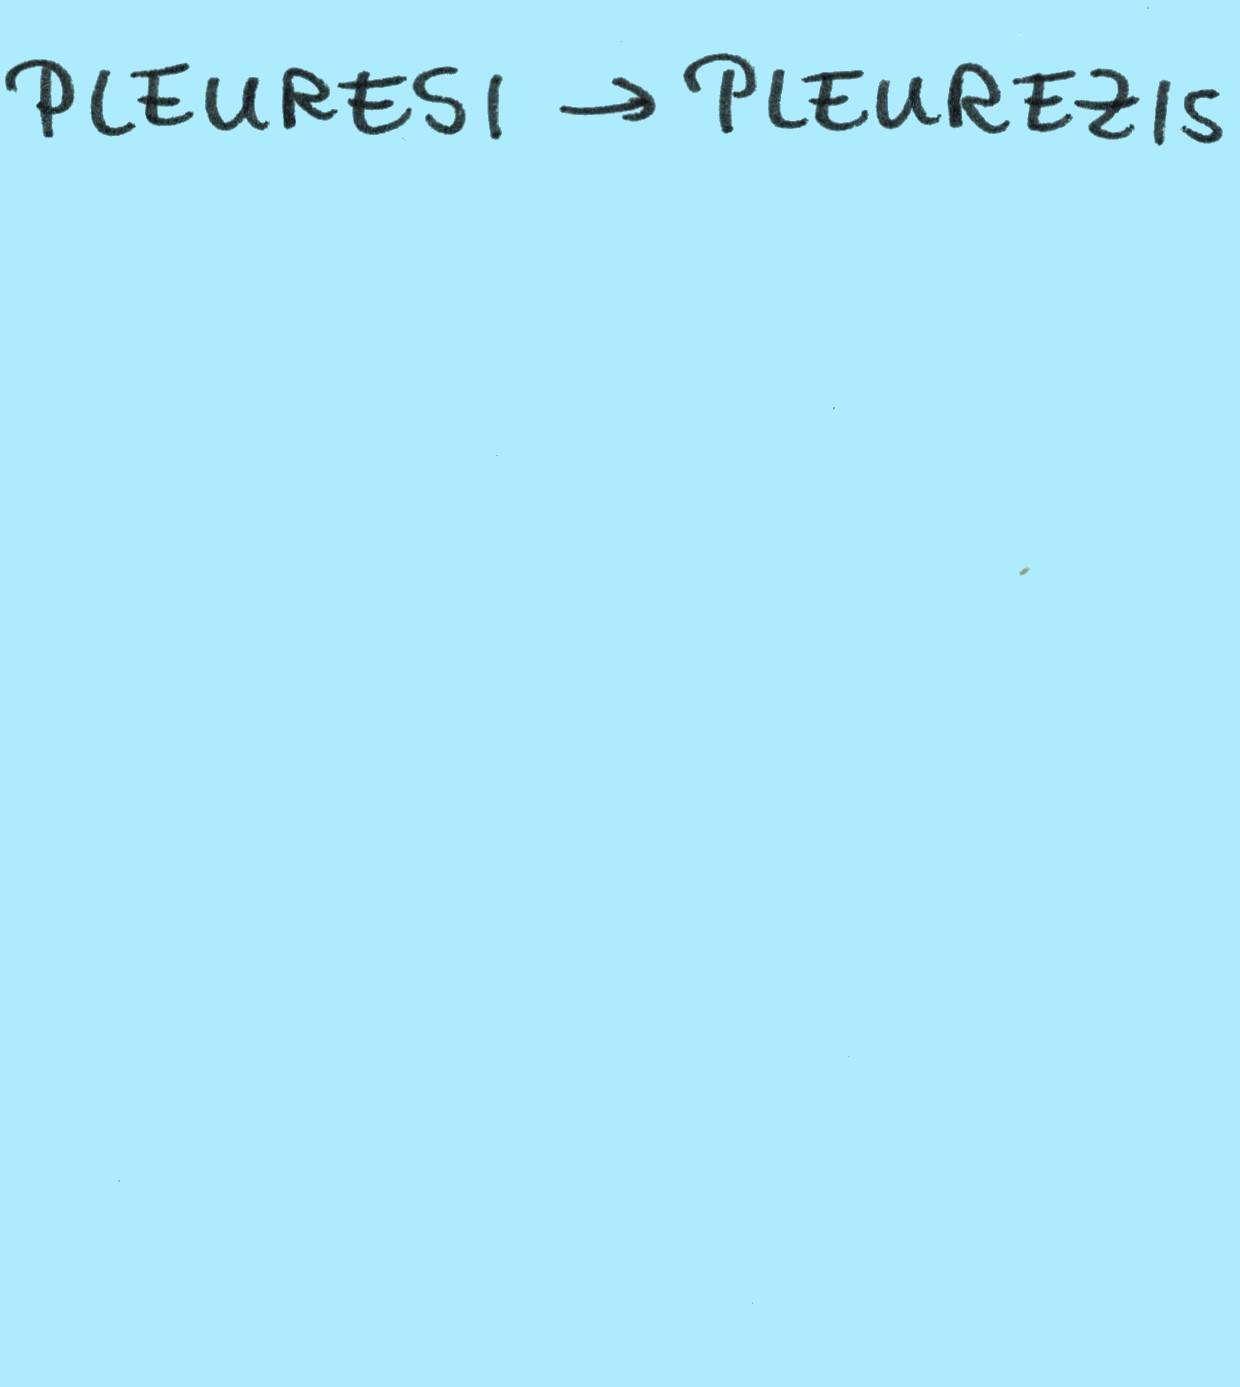 PLEURESI → PLEUREZIS